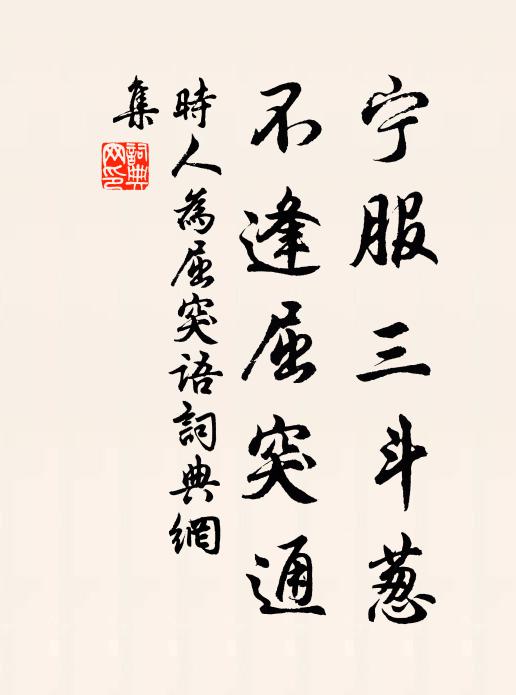 宁服三斗葱
不逢屈突通
時人為屈突語詞典網
集
詞典
网印